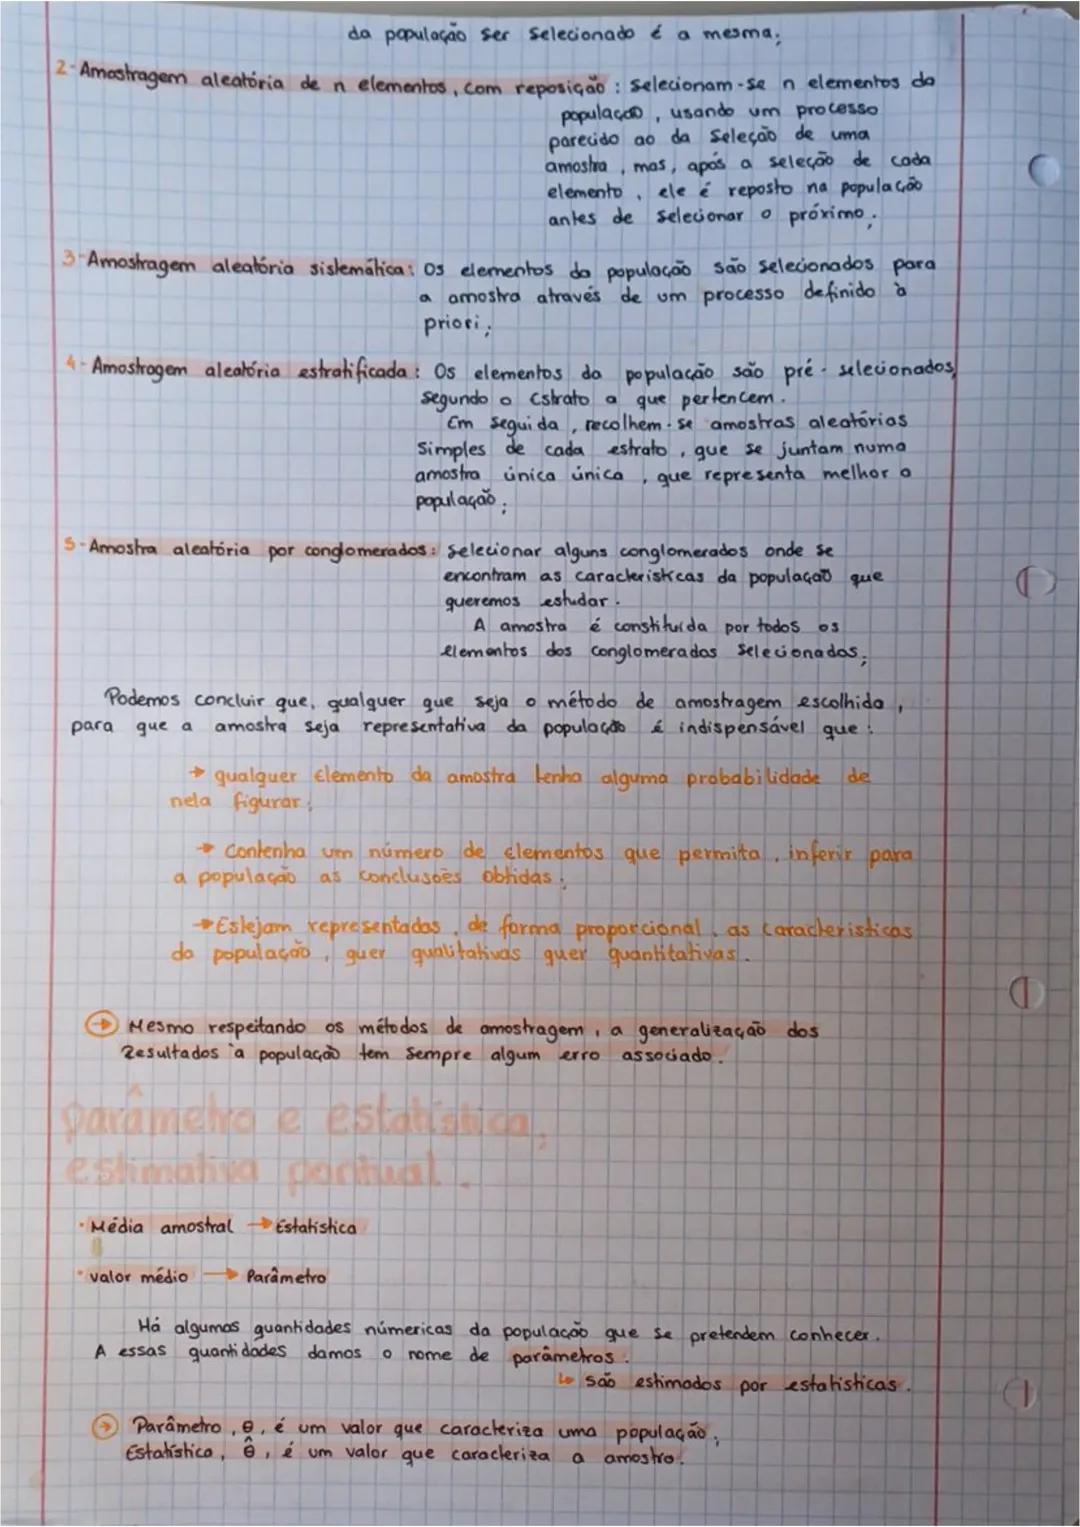 da população ser selecionado é a mesma;
2-Amostragem aleatória de n elementos, com reposição: Selecionam-se n elementos da
população, usando um processo
parecido ao da seleção de uma
amostra, mas, após a seleção de cada
elemento, ele é reposto na população
antes de selecionar o próximo;
3-Amostragem aleatória sistemática: Os elementos da população são selecionados para
a amostra através de um processo definido à
priori;
4-Amostragem aleatória estratificada: Os elementos da população são pré-selecionados,
segundo o estrato a que pertencem.
Em seguida, recolhem-se amostras aleatórias
simples de cada estrato, que se juntam numa
amostra única única, que representa melhor a
população;
5-Amostra aleatória por conglomerados: Selecionar alguns conglomerados onde se
encontram as características da população que
queremos estudar.
A amostra é constituída por todos os
elementos dos conglomerados selecionados;
Podemos concluir que, qualquer que seja o método de amostragem escolhido,
para que a amostra seja representativa da população é indispensável que:
→ qualquer elemento da amostra tenha alguma probabilidade de
nela figurar;
→ Contenha um número de elementos que permita, inferir para
a população as conclusões obtidas;
→ Estejam representadas, de forma proporcional, as características
da população, quer qualitativas quer quantitativas.
→ Mesmo respeitando os métodos de amostragem, a generalização dos
Resultados à população tem sempre algum erro associado.
parâmetro e estatística,
estimativa pontual.
• Média amostral → Estatística
• valor médio → Parâmetro
Há algumas quantidades númericas da população que se pretendem conhecer.
A essas quantidades damos o nome de parâmetros.
↳ são estimados por estatísticas.
→ Parâmetro, θ, é um valor que caracteriza uma população;
Estatística, θ̂, é um valor que caracteriza a amostra.